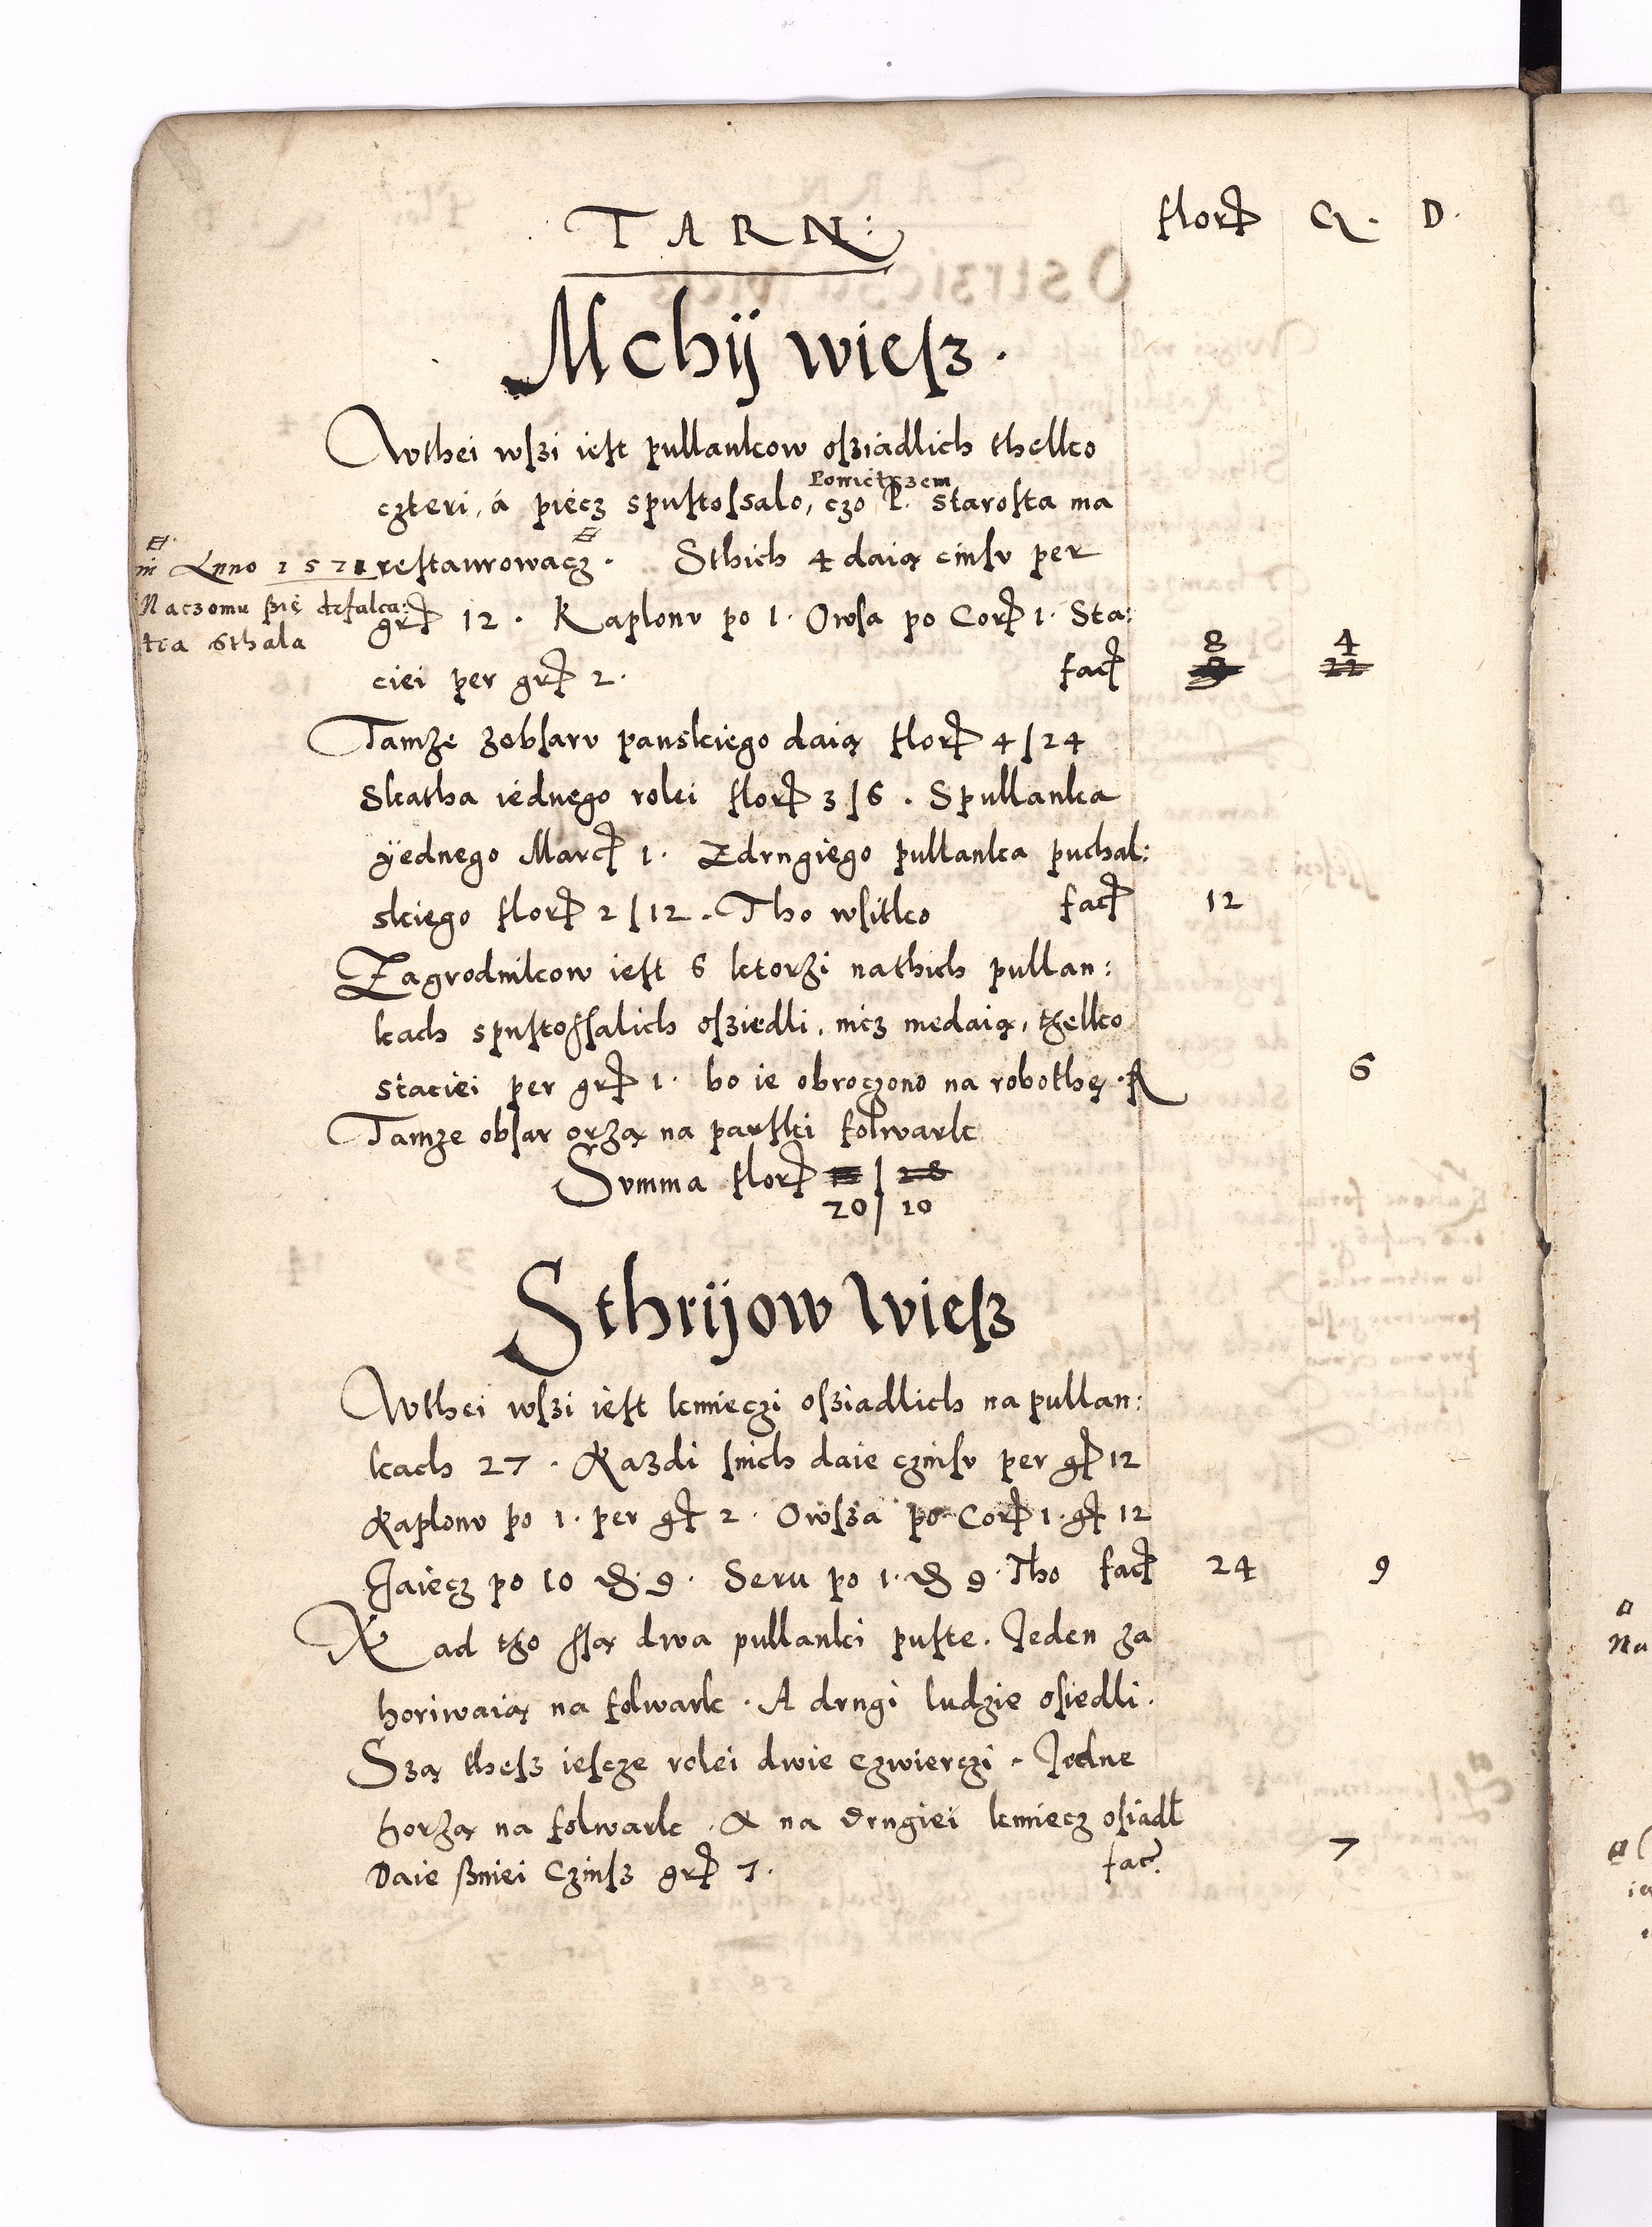 TARN: flor Q. D.
Mchij wiesz.
Wthei wszi iest pullankow osziadlich thelko
Pomietrzem
czteri, á pięcz spustossalo, czo P. starosta ma
in Anno 1571 restaurowacz. Sthich 4 daią cinsv per
Naczomu się defalca:
gr 12. Kaplonv po 1. Owsa po Cor 1. Sta:
tia sthala
8 4
ciei per gr 2. fac 22
Tamże zobsarv panskiego daią flor 4/24
Skatha iednego rolei flor 3/6. Spullanka
ÿednego Marc 1. Zdrugiego pullanka puchal:
skiego flor 2/12. Tho wsitko fac 12
Zagrodnikow iest 6 ktorżi nathich pullan:
kach spustossalich osziedli, nicz niedaią, thelko
staciei per gr 1. bo ie obroczono na robothę. 6
Tamze obsar orżą na parski folwark
Svmma flor 28
20/10
Sthrijow Wiesz
Wthei wszi iest kmieczi osziadlich na pullan:
kach 27. Każdi snich daie czinsv per g 12
Kaplonv po 1. per g 2. Owsza po Cor 1. g 12
Jaiecz po 10 d. 9. Seru po 1. d 9. Tho fac 24 9
Nad tho ssą dwa pullanki puste. Jeden za
horiwaią na folwark. A drugi ludzie osiedli.
Szą thesz iescze rolei dwie czwierczi. Jedne
horżą na folwark. A na drugiei kmiecz osiadł
Daie sniei Czinsz gr 7. fac. 7